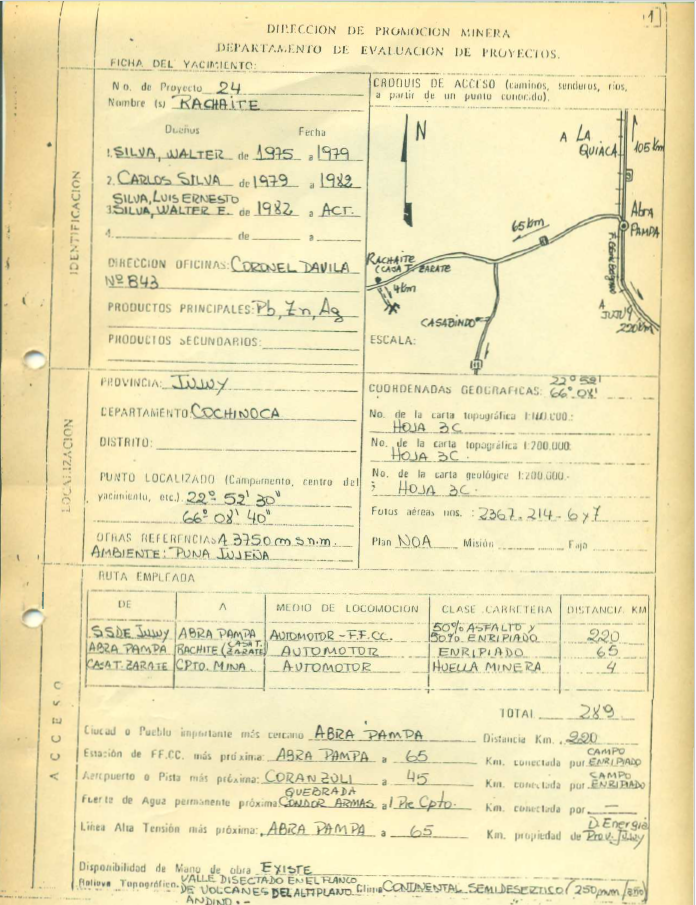 [1]
DIRECCION DE PROMOCION MINERA
DEPARTAMENTO DE EVALUACION DE PROYECTOS.
FICHA DEL YACIMIENTO:
IDENTIFICACION
No. de Proyecto 24
Nombre (s) RACHAITE
Dueños Fecha
1. SILVA, WALTER de 1975 a 1979
2. CARLOS SILVA de 1979 a 1982
SILVA, LUIS ERNESTO
3. SILVA, WALTER E. de 1982 a ACT.
4. de a
DIRECCION OFICINAS: CORONEL DAVILA
Nº 843
PRODUCTOS PRINCIPALES: Pb, Zn, Ag
PRODUCTOS SECUNDARIOS:
CROQUIS DE ACCESO (caminos, senderos, rios,
a partir de un punto conocido).
N
A LA
QUIACA
105 Km
ABRA
PAMPA
65 Km
RACHAITE
(CASA T. ZARATE
4 Km
CASABINDO
A
JUJUY
220 Km
ESCALA:
LOCALIZACION
PROVINCIA: JUJUY
DEPARTAMENTO COCHINOCA
DISTRITO:
PUNTO LOCALIZADO (Campamento, centro del
yacimiento, etc.) 22º 52' 30"
66º 08' 40"
OTRAS REFERENCIAS A 3750 m s n.m.
AMBIENTE: PUNA JUJEÑA
22º 52'
COORDENADAS GEOGRAFICAS: 66º 08'
No. de la carta topográfica 1:100.000.:
HOJA 3C
No. de la carta topográfica 1:200.000:
HOJA 3C.
No. de la carta geológica 1:200.000.
: HOJA 3C.
Fotos aéreas nos. : 2367-214-6 y 7
Plan NOA Misión Faja
ACCESO
RUTA EMPLEADA
DE A MEDIO DE LOCOMOCION CLASE CARRETERA DISTANCIA KM
S.S DE JUJUY ABRA PAMPA AUTOMOTOR - F.F.CC. 50% ASFALTO y 50% ENRIPIADO 220
ABRA PAMPA RACHITE (CASA T. ZARATE) AUTOMOTOR ENRIPIADO 65
CASA T. ZARATE CPTO. MINA AUTOMOTOR HUELLA MINERA 4
TOTAL 289
Ciudad o Pueblo importante más cercano ABRA PAMPA Distancia Km. 220
Estación de FF.CC. más próxima: ABRA PAMPA a 65 Km. conectada por CAMPO ENRIPIADO
Aeropuerto o Pista más próxima: CORANZULI a 45 Km. conectada por CAMPO ENRIPIADO
Fuerte de Agua permanente próxima QUEBRADA CONDOR ARMAS a 1 Pie Cpto. Km. conectada por —
Línea Alta Tensión más próxima: ABRA PAMPA a 65 Km. propiedad de D. Energia Prov. Jujuy
Disponibilidad de Mano de obra EXISTE
Relieve Topográfico. VALLE DISECTADO EN EL FLANCO
DE VOLCANES DEL ALTIPLANO Clima CONTINENTAL SEMIDESERTICO (250 mm/año)
ANDINO.-